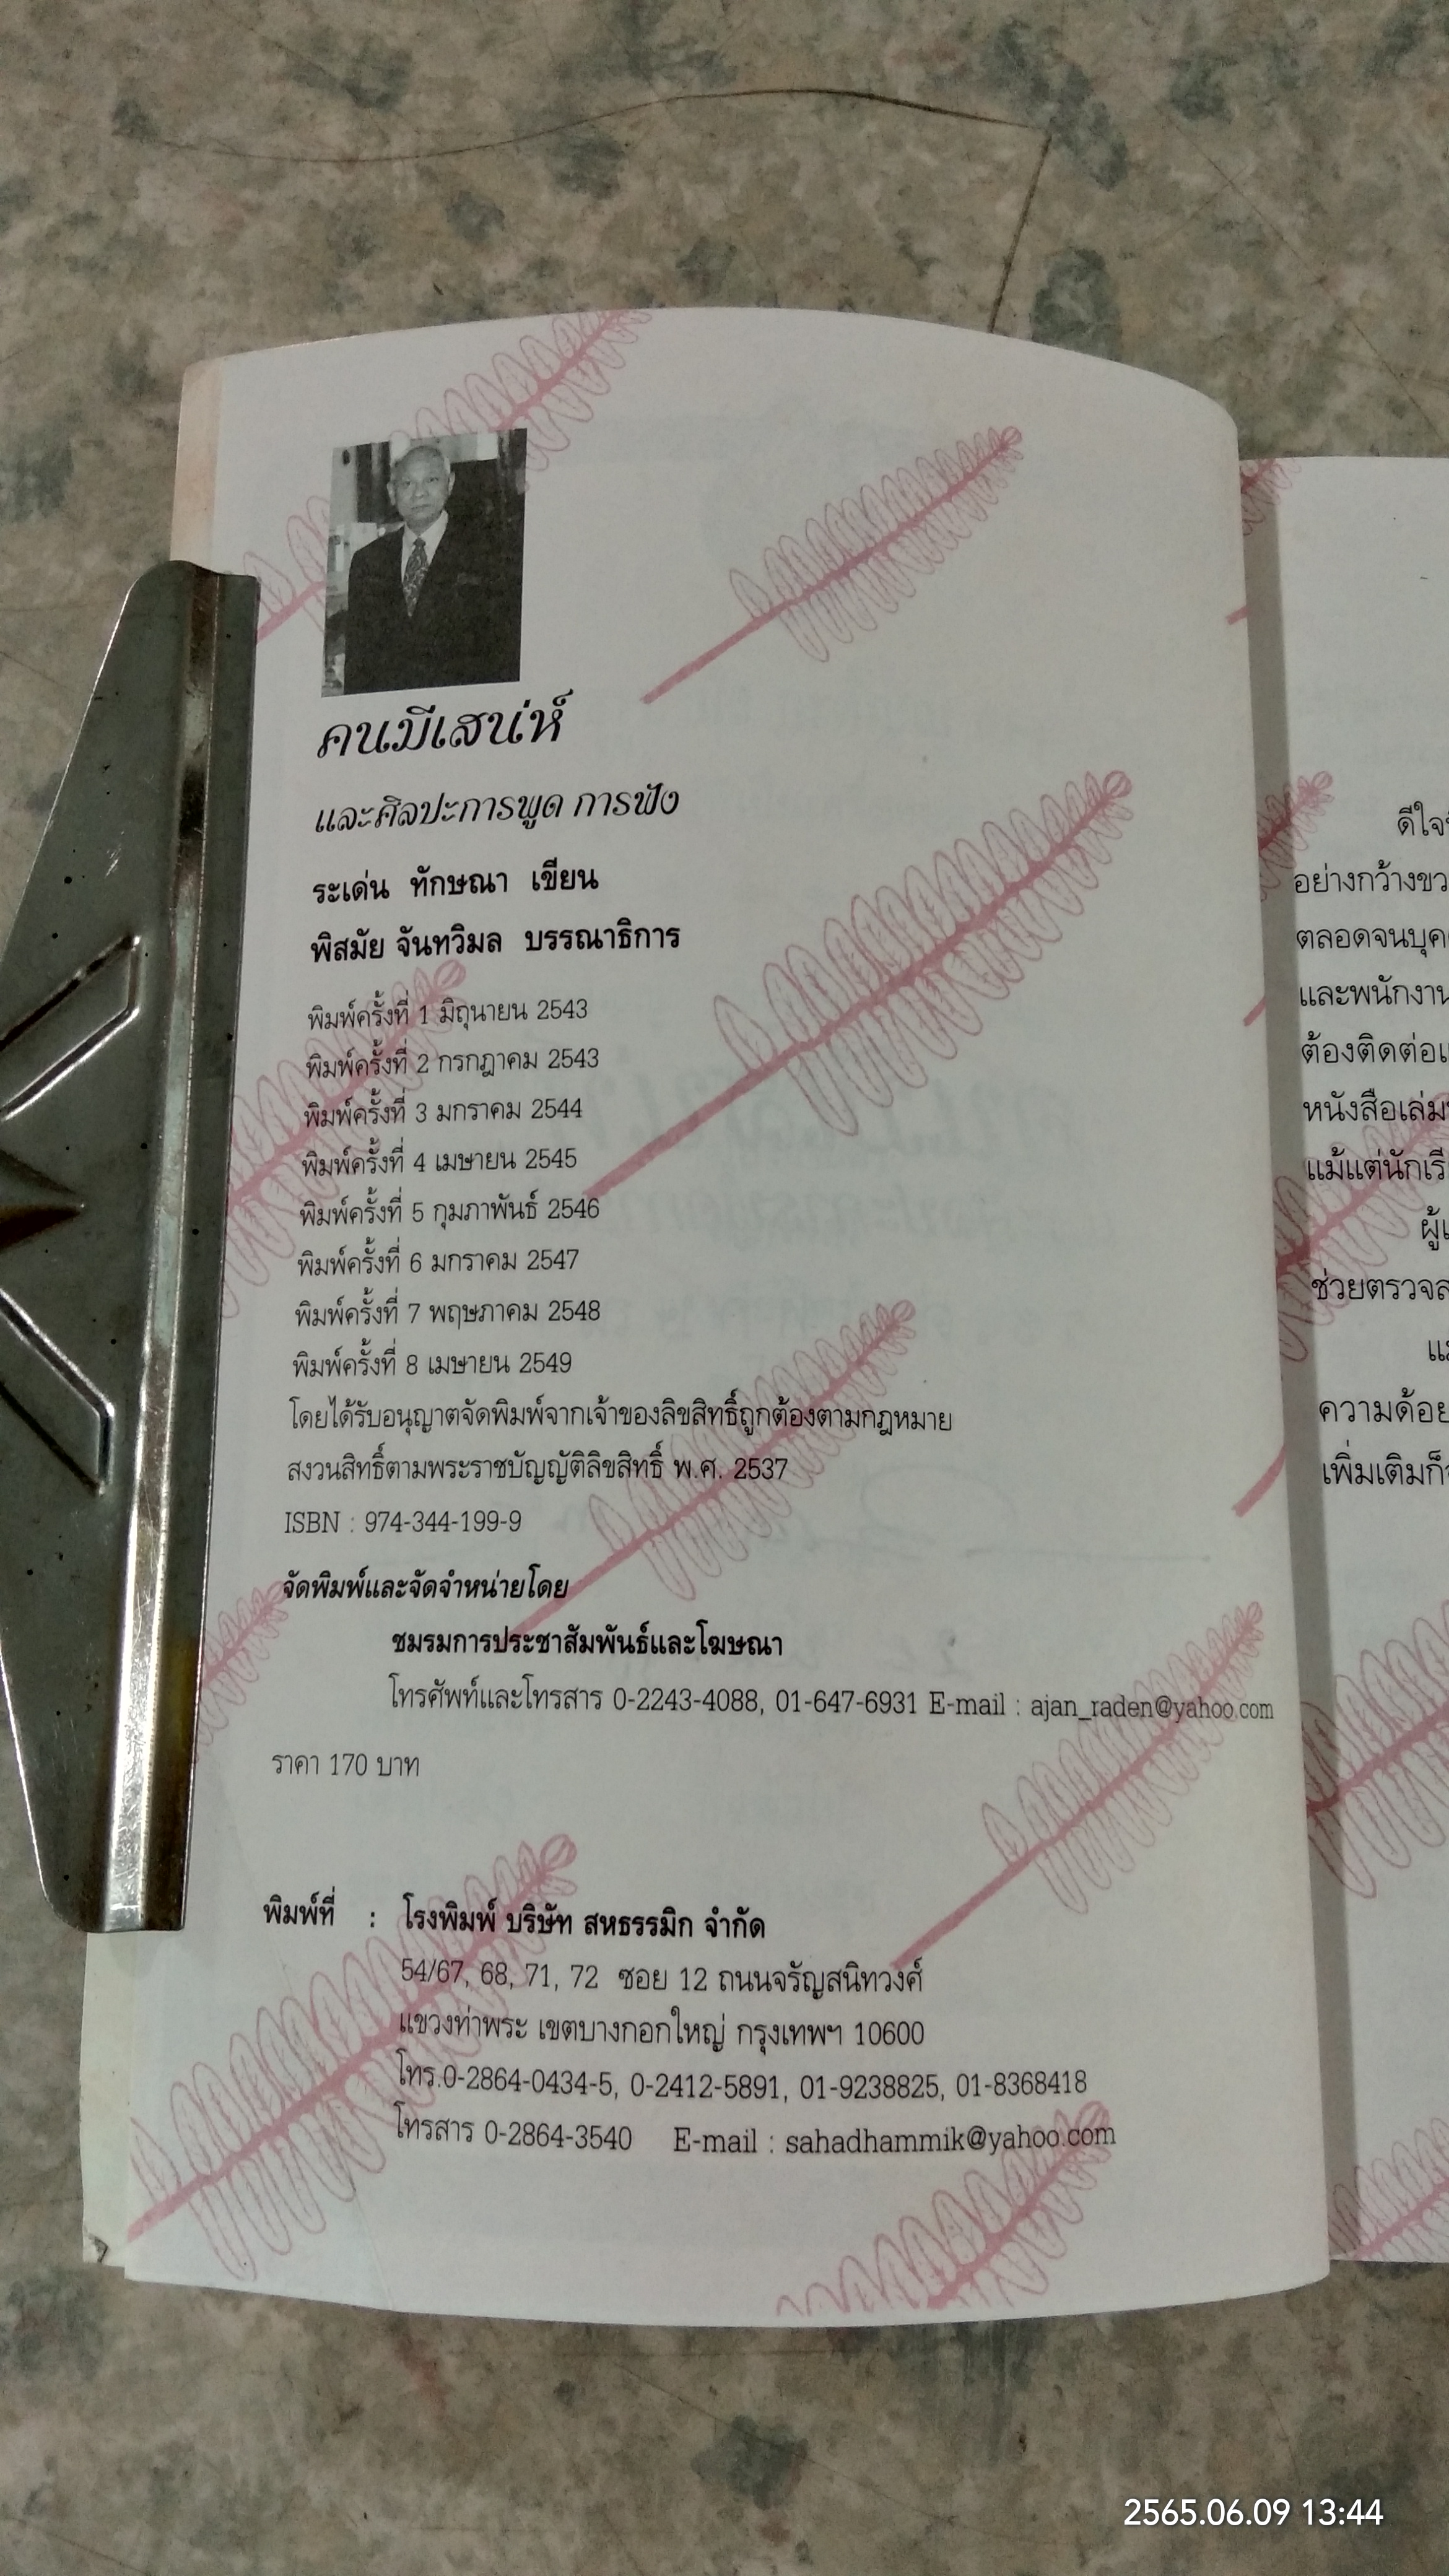 คนมีเสน่ห์
และศิลปะการพูด การฟัง
ระเด่น ทักษณา เขียน
พิสมัย จันทวิมล บรรณาธิการ
พิมพ์ครั้งที่ 1 มิถุนายน 2543
พิมพ์ครั้งที่ 2 กรกฎาคม 2543
พิมพ์ครั้งที่ 3 มกราคม 2544
พิมพ์ครั้งที่ 4 เมษายน 2545
พิมพ์ครั้งที่ 5 กุมภาพันธ์ 2546
พิมพ์ครั้งที่ 6 มกราคม 2547
พิมพ์ครั้งที่ 7 พฤษภาคม 2548
พิมพ์ครั้งที่ 8 เมษายน 2549
โดยได้รับอนุญาตจัดพิมพ์จากเจ้าของลิขสิทธิ์ถูกต้องตามกฎหมาย
สงวนสิทธิ์ตามพระราชบัญญัติลิขสิทธิ์ พ.ศ. 2537
ISBN : 974-344-199-9
จัดพิมพ์และจัดจำหน่ายโดย
ชมรมการประชาสัมพันธ์และโฆษณา
โทรศัพท์และโทรสาร 0-2243-4088, 01-647-6931 E-mail : ajan_raden@yahoo.com
ราคา 170 บาท
พิมพ์ที่ : โรงพิมพ์ บริษัท สหธรรมิก จำกัด
54/67, 68, 71, 72 ซอย 12 ถนนจรัญสนิทวงศ์
แขวงท่าพระ เขตบางกอกใหญ่ กรุงเทพฯ 10600
โทร.0-2864-0434-5, 0-2412-5891, 01-9238825, 01-8368418
โทรสาร 0-2864-3540 E-mail : sahadhammik@yahoo.com
ดีใจ
อย่างกว้างขว
ตลอดจนบุค
และพนักงาน
ต้องติดต่อ
หนังสือเล่ม
แม้แต่นักเรี
ช่วยตรวจส
ความด้อย
เพิ่มเติมก็
2565.06.09 13:44